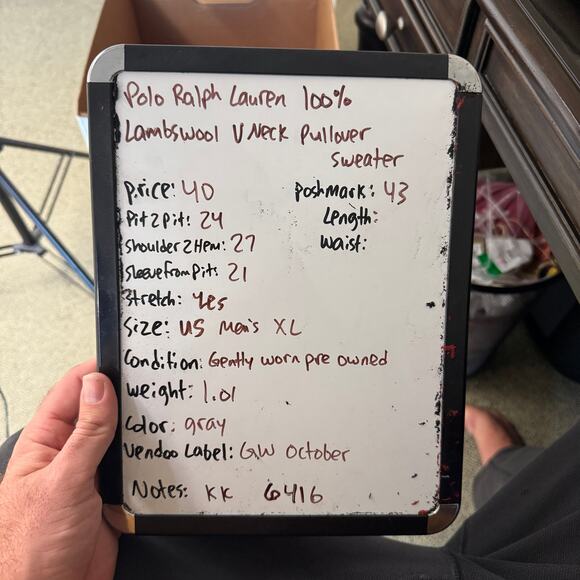 Polo Ralph Lauren 100%
Lambswool V Neck Pullover
Sweater
Price: 40 Poshmark: 43
Pit 2 pit: 24 Length:
Shoulder 2 Hem: 27 Waist:
Sleeve From Pit: 21
Stretch: Yes
Size: US Men's XL
Condition: Gently worn pre owned
Weight: 1.01
Color: gray
Vendoo Label: GW October
Notes: KK 6416